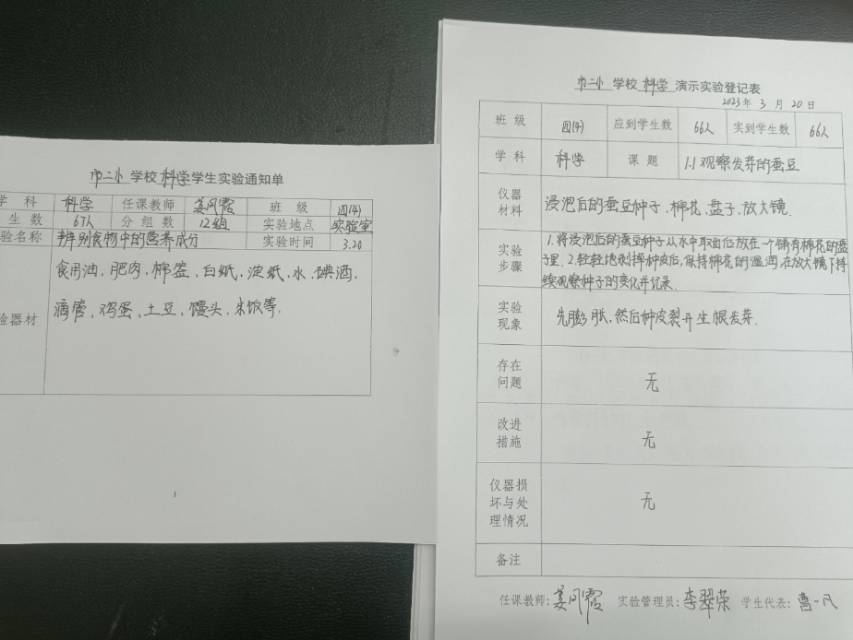 市二小 学校 科学 学生实验通知单
学 科 科学 任课教师 姜风霞 班 级 四(4)
生 数 67人 分 组 数 12组 实验地点 实验室
验名称 辨别食物中的营养成分 实验时间 3.20
验器材 食用油、肥肉、棉签、白纸、淀纸、水、碘酒、
滴管、鸡蛋、土豆、馒头、米饭等.
市二小 学校 科学 演示实验登记表
2023年 3 月 20 日
班 级 四(4) 应到学生数 66人 实到学生数 66人
学 科 科学 课 题 1.1观察发芽的蚕豆
仪器
材料 浸泡后的蚕豆种子、棉花、盘子、放大镜.
实验
步骤 1.将浸泡后的蚕豆种子从水中取出后放在一个铺有棉花的盘
子里. 2.轻轻地剥掉种皮后,保持棉花的湿润,在放大镜下持
续观察种子的变化并记录.
实验
现象 先膨胀,然后种皮裂开生根发芽.
存在
问题 无
改进
措施 无
仪器损
坏与处
理情况 无
备注
任课教师:姜风霞 实验管理员:李翠荣 学生代表:曹一凡